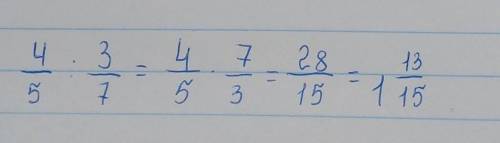 4/5 : 3/7 = 4/5 · 7/3 = 28/15 = 1 13/15